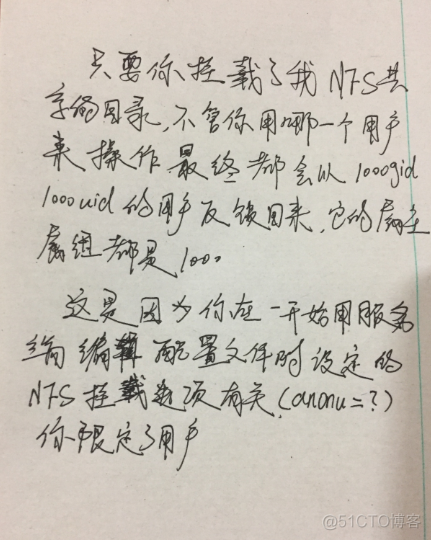 只要你挂载了我NFS共
享的目录,不管你用哪一个用户
来操作最终都会以1000gid
1000uid的用户反馈回来,它的属主
属组都是1000
这是因为你在一开始用服务
端编辑配置文件时设定的
NFS挂载选项有关(anonu=?)
你限定了用户
@51CTO博客